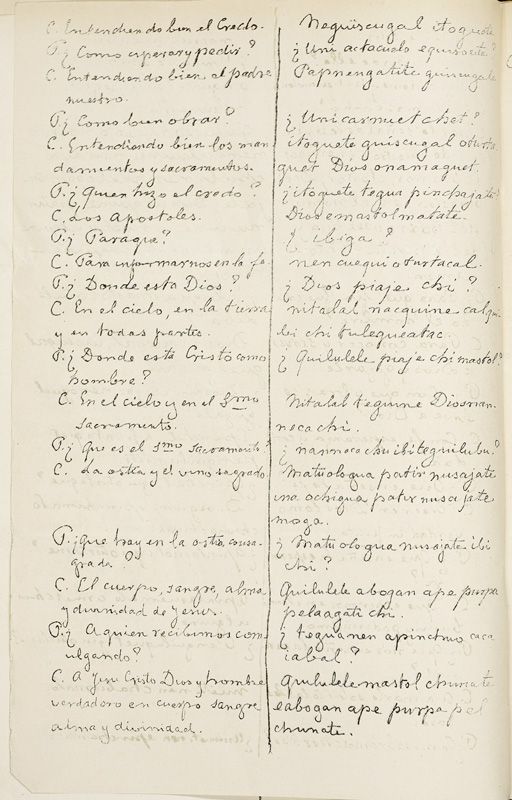 C. Entendiendo bien el Credo.
P. ¿Como esperar y pedir?
C. Entendiendo bien el padre
nuestro.
P. ¿Como bien obrar?
C. Entendiendo bien los man
damientos y sacramentos.
P. ¿Quien hizo el credo?
C. Los Apostoles.
P. ¿Paraque?
C. Para informarnos en la fe.
P. ¿Donde esta Dios?
C. En el cielo, en la tierra
y en todas partes.
P. ¿Donde esta Cristo como
hombre?
C. En el cielo y en el Smo
sacramento.
P. ¿que es el Smo sacramento?
C. La ostia y el vino sagrado
P. ¿que hay en la ostia consa-
grada?
C. El cuerpo, sangre, alma
y divinidad de Jesus.
P. ¿A quien recibimos com
ulgando?
C. A Jesu Cristo Dios y hombre
verdadero en cuerpo sangre
alma y divinidad.
Neguiscugal itoquete
¿Uni actacuelo equisoite?
Papnengatite guiscugale
¿Unicarmuet chet?
itoquete guiscugal oturta
quet Dios onamaquet.
¿itoquete tegua pinchajate?
Dios emastolmatate.
¿ibiga?
nencuequi oturtacal.
¿Dios piaje chi?
nitalal nacquine calqui
bi chi tulequeatac.
¿Quilulele piaje chi mastol?
Nitalal tequine Diosnan-
neca chi.
¿nanneca chu ibitequilubu?
Matuologua patir nusajati
ina ochigua patir nusajate
moga.
¿Matuologua nusajate ibi
chi?
Quilulele abogan ape purpa
pelaagati chi.
¿teguanen apinctuo caca
iabal?
Quilulele mastol chunate
eabogan ape purpa pel
chunate.